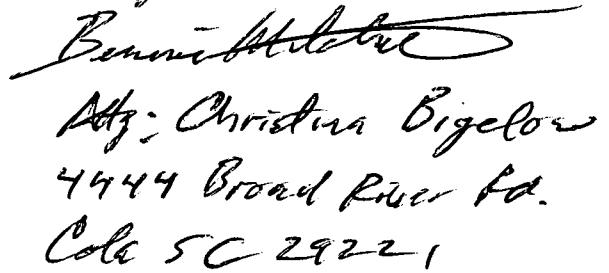 Bennie
Atty: Christina Bigelow
4444 Broad River Rd.
Cola SC 29221